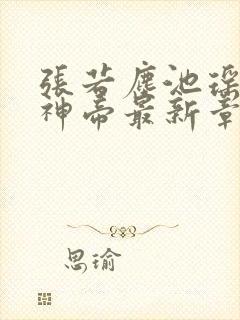 張若塵池瑤
神帝最新章
思瑜